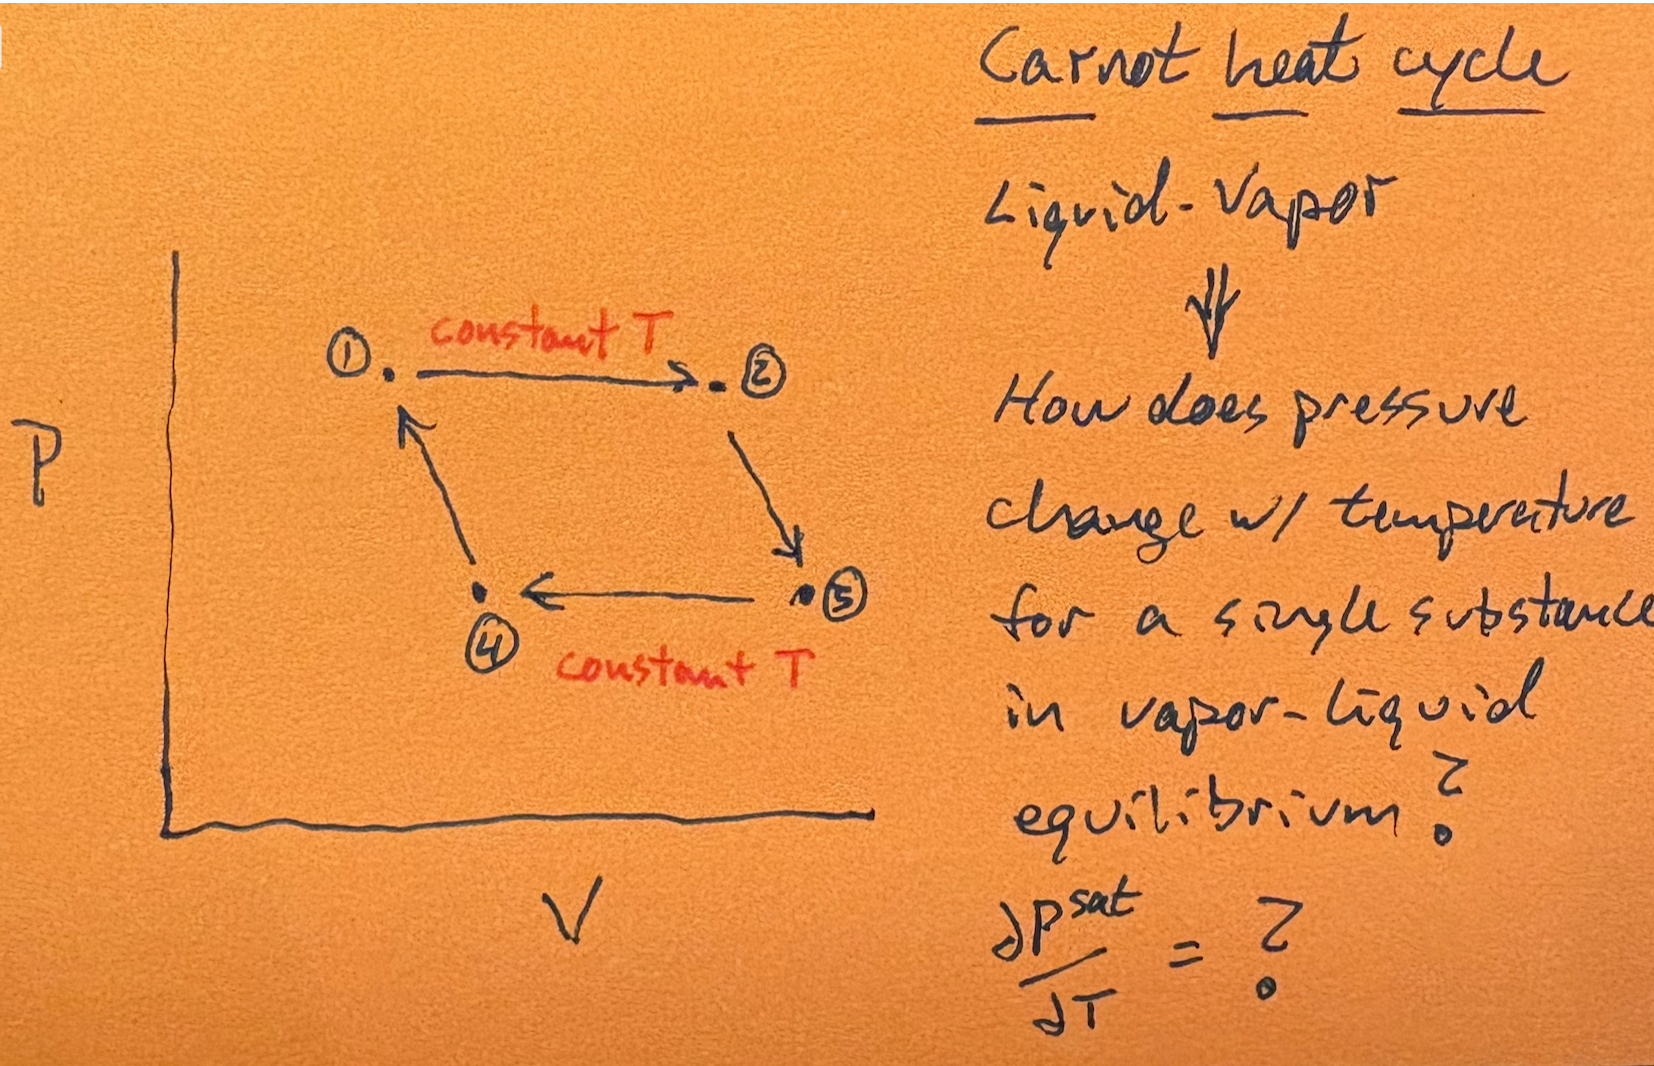 Carnot heat cycle
Liquid-Vapor
⇓
How does pressure
change w/ temperature
for a single substance
in vapor-liquid
equilibrium?
∂P^sat/∂T = ?
P
① constant T ②
④ ③
constant T
V